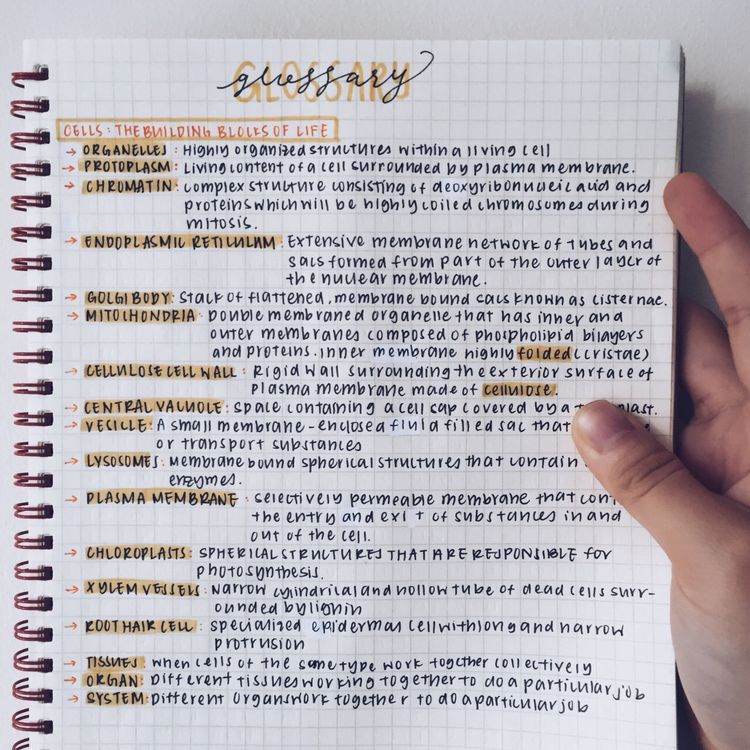 GLOSSARY
glossary
CELLS: THE BUILDING BLOCKS OF LIFE
→ ORGANELLES: Highly organized structures within a living cell
→ PROTOPLASM: Living content of a cell surrounded by plasma membrane.
→ CHROMATIN: complex structure consisting of deoxyribonucleic acid and
proteins which will be highly coiled chromosomes during
mitosis.
→ ENDOPLASMIC RETICULUM: Extensive membrane network of tubes and
sacs formed from part of the outer layer of
the nuclear membrane.
→ GOLGI BODY: stack of flattened, membrane bound sacs known as cisternae.
→ MITOCHONDRIA: Double membraned organelle that has inner and
outer membranes composed of phospholipid bilayers
and proteins. Inner membrane highly folded (cristae)
→ CELLULOSE CELL WALL: Rigid wall surrounding the exterior surface of
plasma membrane made of cellulose.
→ CENTRAL VACUOLE: space containing a cell sap covered by a
→ VESICLE: A small membrane-enclosed fluid filled sac that
or transport substances
→ LYSOSOMES: Membrane bound spherical structures that contain
enzymes.
→ PLASMA MEMBRANE: selectively permeable membrane that
the entry and exit of substances in and
out of the cell.
→ CHLOROPLASTS: SPHERICAL STRUCTURES THAT ARE RESPONSIBLE for
photosynthesis.
→ XYLEM VESSELS: Narrow cylindrical and hollow tube of dead cells surr-
ounded by lignin
→ ROOT HAIR CELL: specialized epidermal cell with long and narrow
protrusion
→ TISSUES: when cells of the same type work together collectively
→ ORGAN: Different tissues working together to do a particular job
→ SYSTEM: Different Organs work together to do a particular job